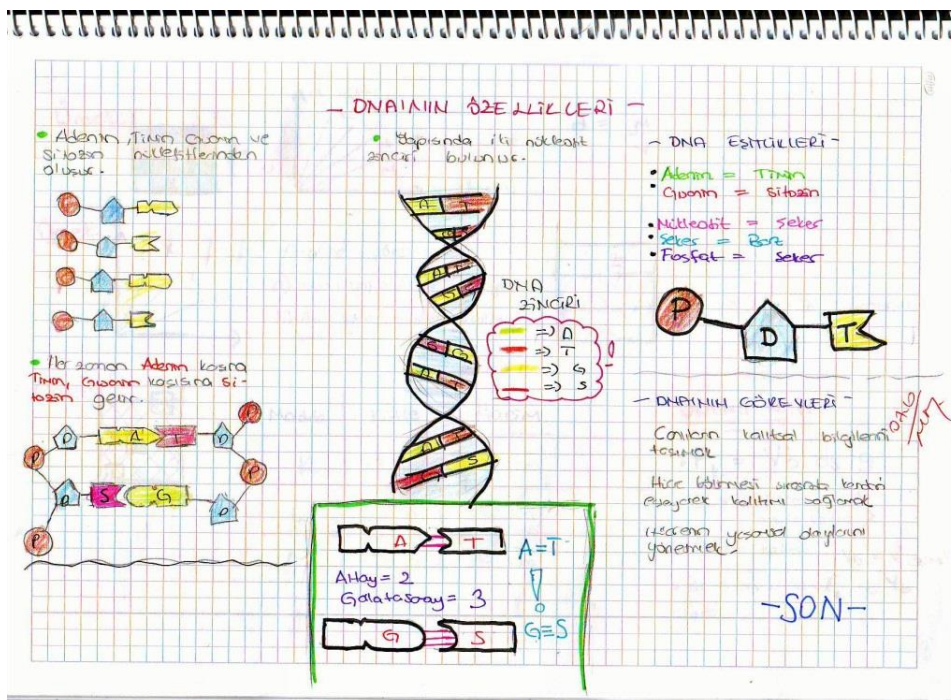 - DNA'NIN ÖZELLİKLERİ -
• Adenin, Timin Guanin ve
Sitozin nükleotitlerinden
oluşur.
• Her zaman Adenin karşına
Timin, Guanin karşısına Si-
tozin gelir.
P
D
A
T
D
P
P
D
S
G
D
P
• Yapısında iki nükleotit
zinciri bulunur.
A T
A
A T
S
S G
A
A
S
DNA
ZİNCİRİ
=> A
=> T
=> G
=> S
A T
A=T
AHay = 2
Galatasaray = 3
!
G S
G≡S
- DNA EŞİTLİKLERİ -
• Adenin = Timin
• Guanin = Sitozin
• Nükleotit = Şeker
• Şeker = Baz
• Fosfat = Şeker
P
D
T
- DNA'NIN GÖREVLERİ -
Canlıların kalıtsal bilgilerini
taşımak
Hücre bölünmesi sırasında kendini
eşleyerek kalıtımı sağlamak
Hücrenin yaşamsal olaylarını
yönetmek.
-SON-